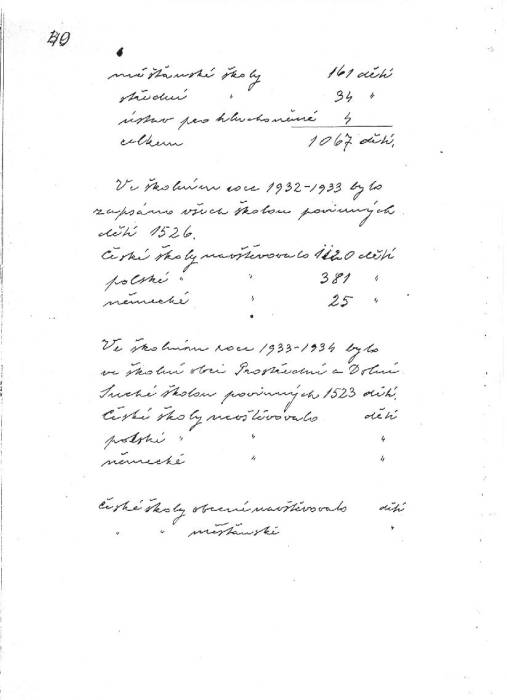 40
měšťanské školy 161 dětí
střední " 34 "
ústav pro hluchoněmé 4
celkem 1067 dětí.
Ve školním roce 1932-1933 bylo
zapsáno všech školou povinných
dětí 1526.
České školy navštěvovalo 1120 dětí
polské " " 381 "
německé " 25 "
Ve školním roce 1933-1934 bylo
ve školní obci Prostřední a Dolní
Suché školou povinných 1523 dětí.
České školy navštěvovalo dětí
polské " " "
německé " "
České školy obecné navštěvovalo dětí
" " měšťanské "